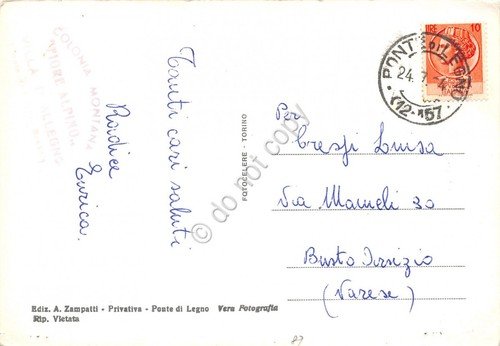 COLONIA MONTANA
VILLA D'ALLEGNO
Tanti cari saluti
Radice
Enrica.
FOTOCELERE - TORINO
LIRE 10
PONTE DI LEGNO
24.7
(12-157
Per
Crespi Luisa
Via Mameli 30
Busto Arsizio
(Varese)
Ediz. A. Zampatti - Privativa - Ponte di Legno Vera Fotografia
Rip. Vietata
do not copy
87